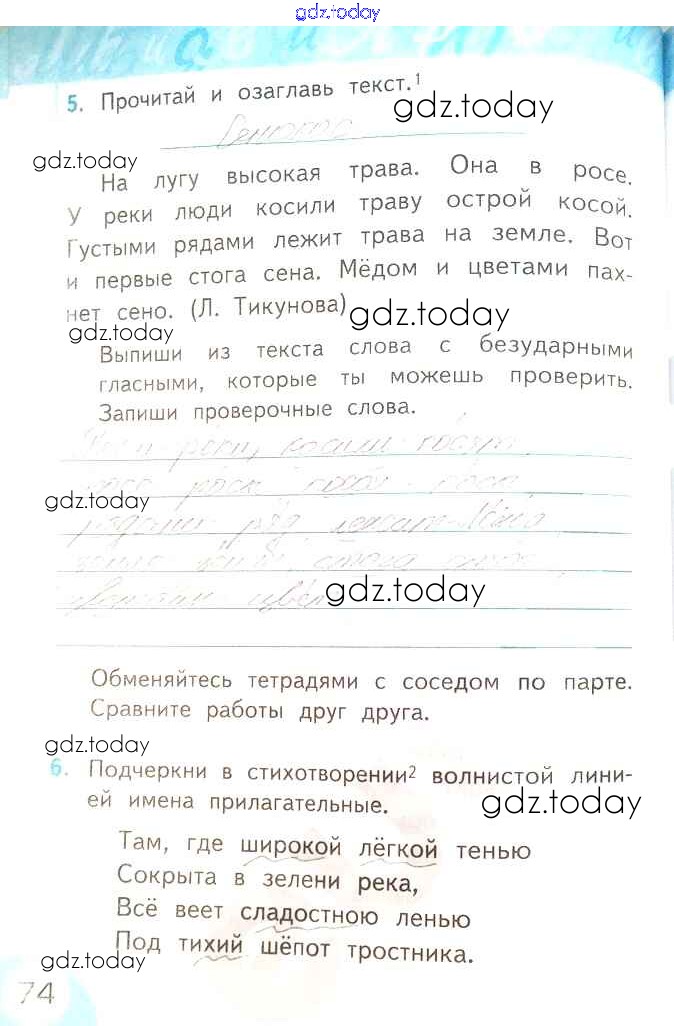 gdz.today
5. Прочитай и озаглавь текст.¹
gdz.today
gdz.today
На лугу высокая трава. Она в росе.
У реки люди косили траву острой косой.
Густыми рядами лежит трава на земле. Вот
и первые стога сена. Мёдом и цветами пах-
нет сено. (Л. Тикунова)
gdz.today
gdz.today
Выпиши из текста слова с безударными
гласными, которые ты можешь проверить.
Запиши проверочные слова.
косили
gdz.today
gdz.today
Обменяйтесь тетрадями с соседом по парте.
Сравните работы друг друга.
gdz.today
6. Подчеркни в стихотворении² волнистой лини-
ей имена прилагательные.
gdz.today
Там, где широкой лёгкой тенью
Сокрыта в зелени река,
Всё веет сладостною ленью
Под тихий шёпот тростника.
gdz.today
74